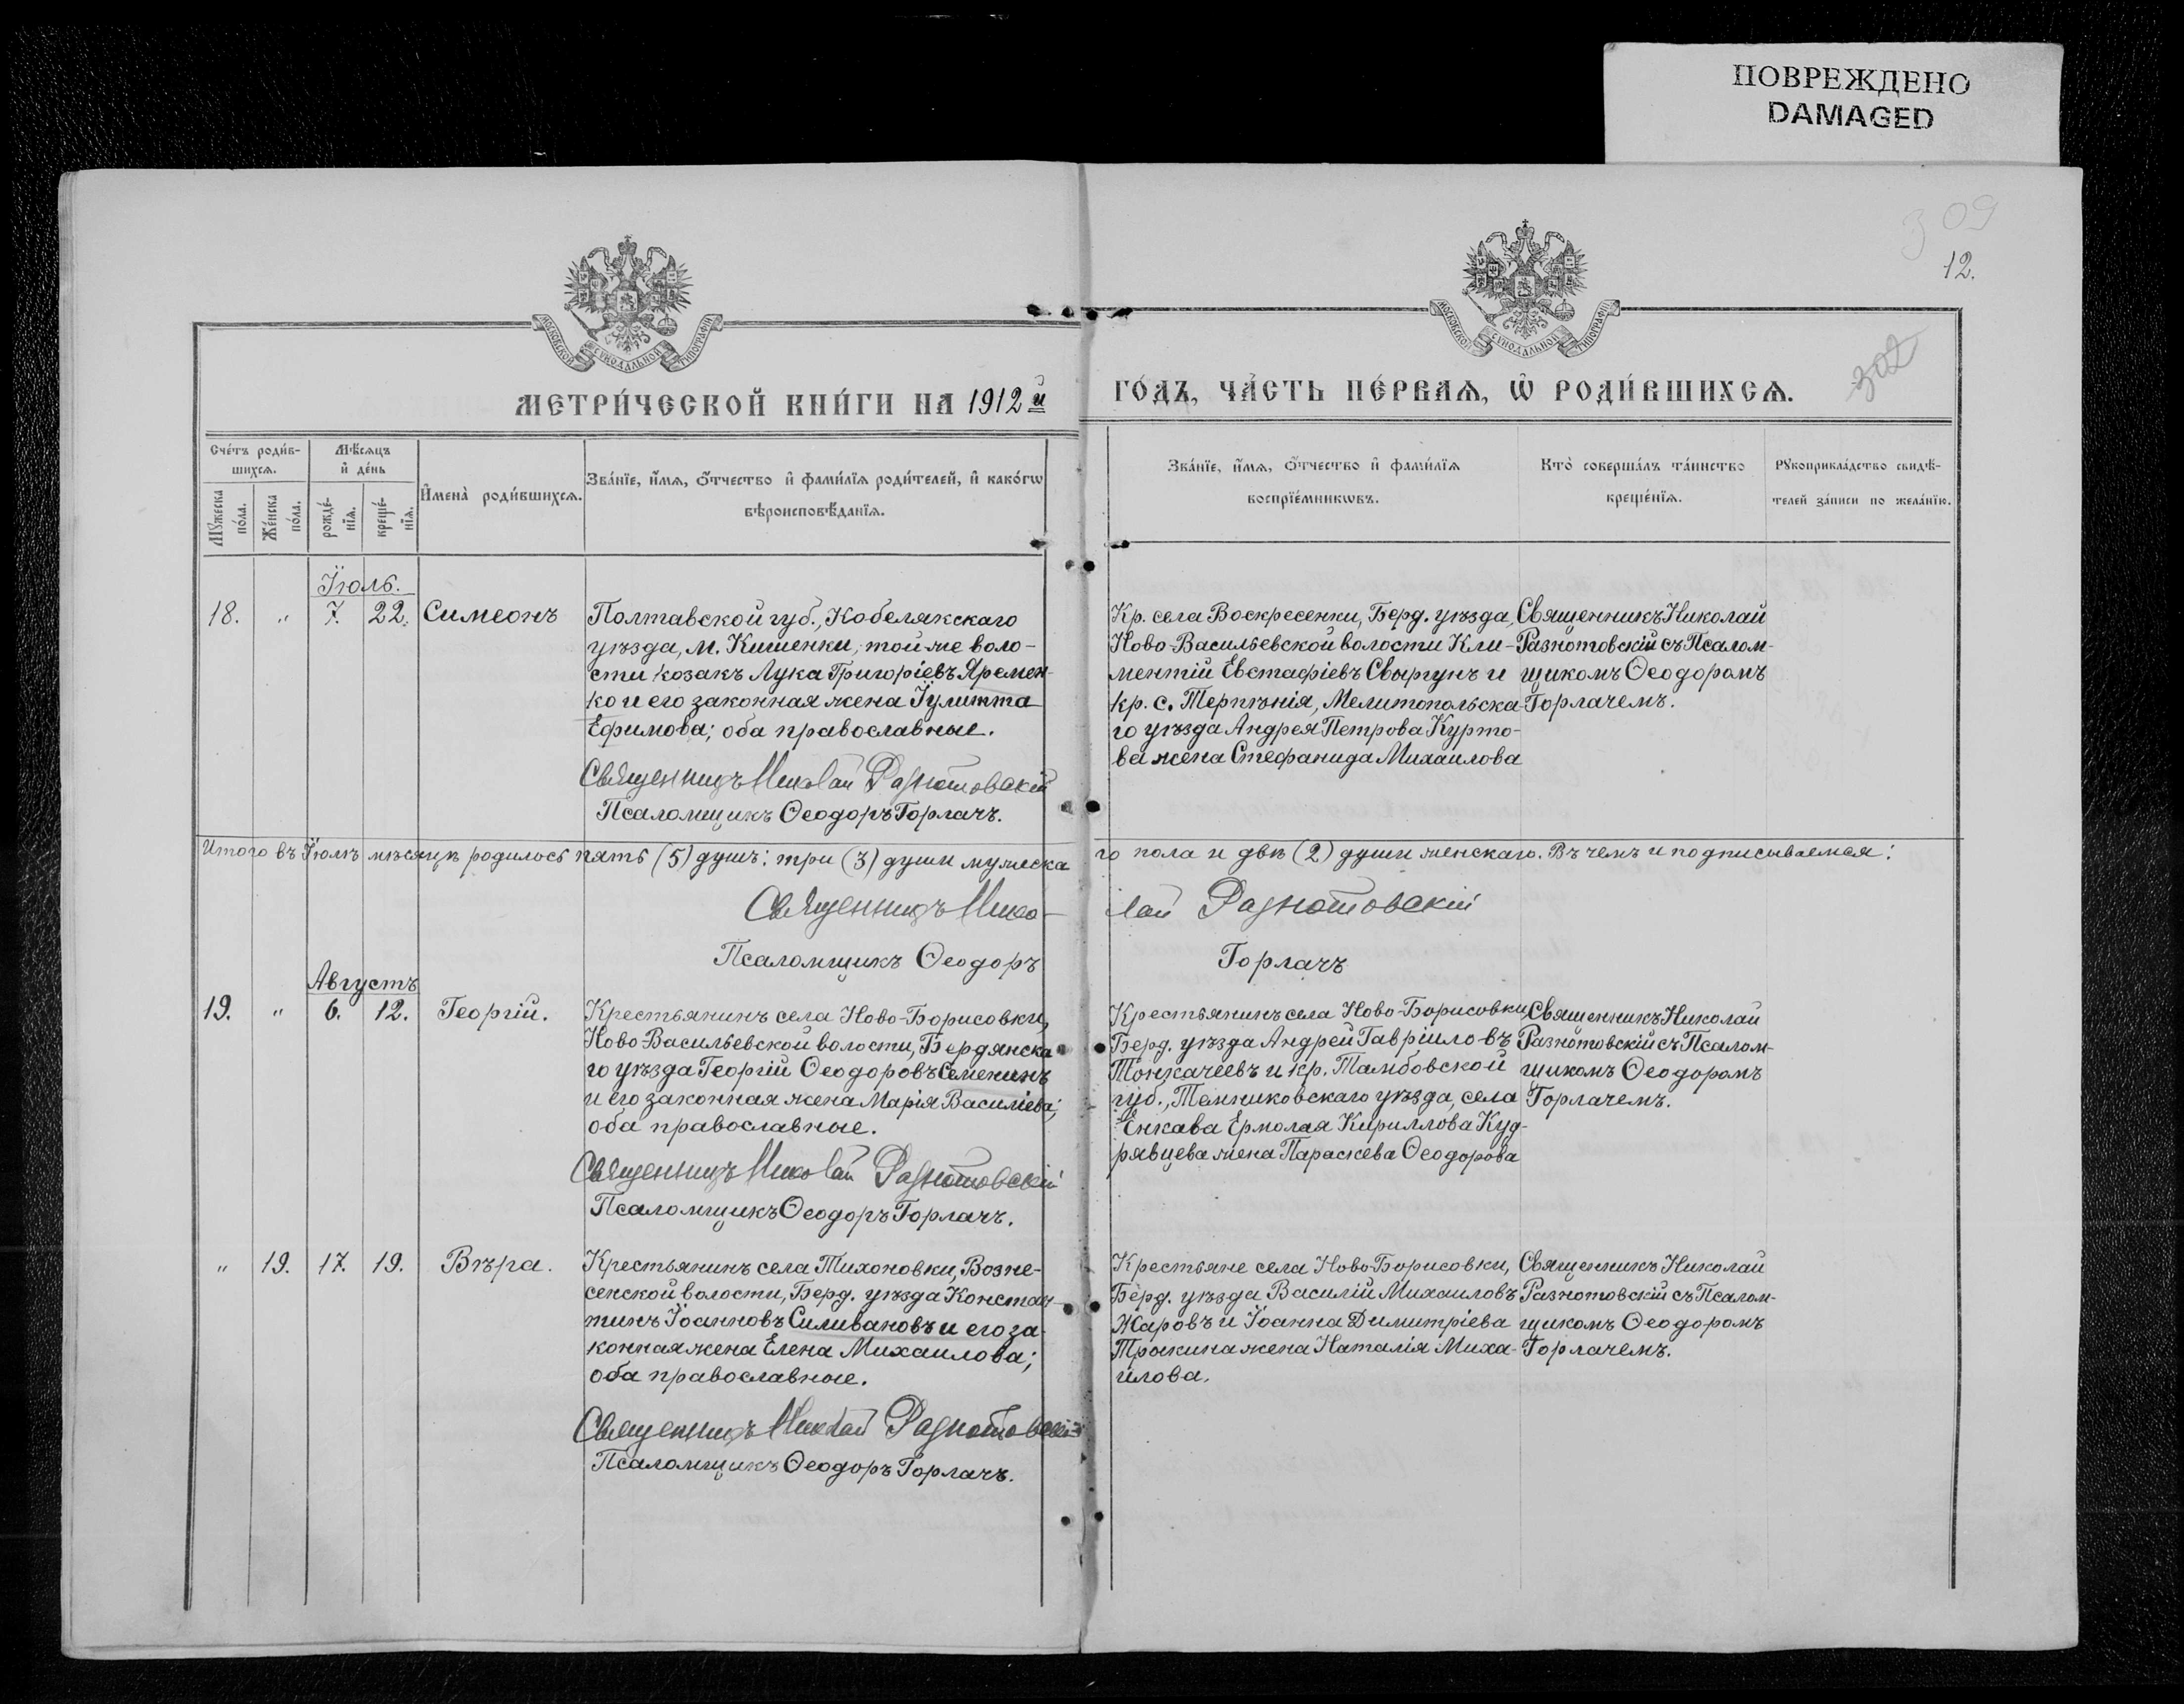 ПОВРЕЖДЕНО
DAMAGED
309
12.
302
МОСКОВСКОЙ СѴНОДАЛЬНОЙ ТИПОГРАФІИ
МОСКОВСКОЙ СѴНОДАЛЬНОЙ ТИПОГРАФІИ
МЕТРИ́ЧЕСКОЙ КНИ́ГИ НА 1912й
ГО́ДЪ, ЧА́СТЬ ПЕ́РВАѦ, Ѡ РОДИ́ВШИХСѦ.
Сче́тъ роди́в-
шихсѧ.
Мѣ́сѧцъ
и҆ де́нь
Мꙋ́жеска
по́ла.
Же́нска
по́ла.
рожде́-
нїѧ.
креще́-
нїѧ.
И҆мена̀ роди́вшихсѧ.
Зва́нїе, и҆́мѧ, ѻ҆́тчество и҆ фами́лїѧ роди́телей, и҆ како́гѡ
вѣроисповѣ́данїѧ.
Зва́нїе, и҆́мѧ, ѻ҆́тчество и҆ фами́лїѧ
воспрїе́мникѡвъ.
Кто̀ соверша́лъ та́инство
креще́нїѧ.
Рꙋкоприкла́дство свидѣ́-
телей за́писи по жела́нїю.
Іюль.
18. " 7. 22. Симеонъ
Полтавской губ., Кобелякскаго
уѣзда, м. Кишенки, той же воло-
сти козакъ Лука Григоріевъ Яремен-
ко и его законная жена Іулитта
Ефимова; оба православные.
Священникъ Николай Разнотовскій
Псаломщикъ Ѳеодоръ Горлачъ.
Кр. села Воскресенки, Берд. уѣзда,
Ново-Васильевской волости Кли-
ментій Евстафіевъ Свыргунъ и
кр. с. Терпѣнія, Мелитопольска-
го уѣзда Андрея Петрова Курто-
ва жена Стефанида Михаилова
Священникъ Николай
Разнотовскій съ Псалом-
щикомъ Ѳеодоромъ
Горлачемъ.
Итого въ Іюлѣ мѣсяцѣ родилось пять (5) душъ: три (3) души мужеска
го пола и двѣ (2) души женскаго. Въ чемъ и подписываемся:
Священникъ Нико-
лай Разнотовскій
Псаломщикъ Ѳеодоръ
Горлачъ
Августъ
19. " 6. 12. Георгій.
Крестьянинъ села Ново-Борисовки,
Ново-Васильевской волости, Бердянска
го уѣзда Георгій Ѳеодоровъ Семенинъ
и его законная жена Марія Василіева;
оба православные.
Священникъ Николай Разнотовскій
Псаломщикъ Ѳеодоръ Горлачъ.
Крестьянинъ села Ново-Борисовки,
Берд. уѣзда Андрей Гавріилο-въ
Тонкачеевъ и кр. Тамбовской
губ., Темниковскаго уѣзда, села
Енкава Ермолая Кириллова Куд-
рявцева жена Параскева Ѳеодорова
Священникъ Николай
Разнотовскій съ Псалом-
щикомъ Ѳеодоромъ
Горлачемъ.
" 19. 17. 19. Вѣра.
Крестьянинъ села Тихоновки, Возне-
сенской волости, Берд. уѣзда Констан-
тинъ Іоанновъ Силивановъ и его за-
конная жена Елена Михаилова;
оба православные.
Священникъ Николай Разнотовскій
Псаломщикъ Ѳеодоръ Горлачъ.
Крестьяне села Ново-Борисовки,
Берд. уѣзда Василій Михаиловъ
Жаровъ и Іоанна Димитріева
Трыкина жена Наталія Миха-
илова.
Священникъ Николай
Разнотовскій съ Псалом-
щикомъ Ѳеодоромъ
Горлачемъ.